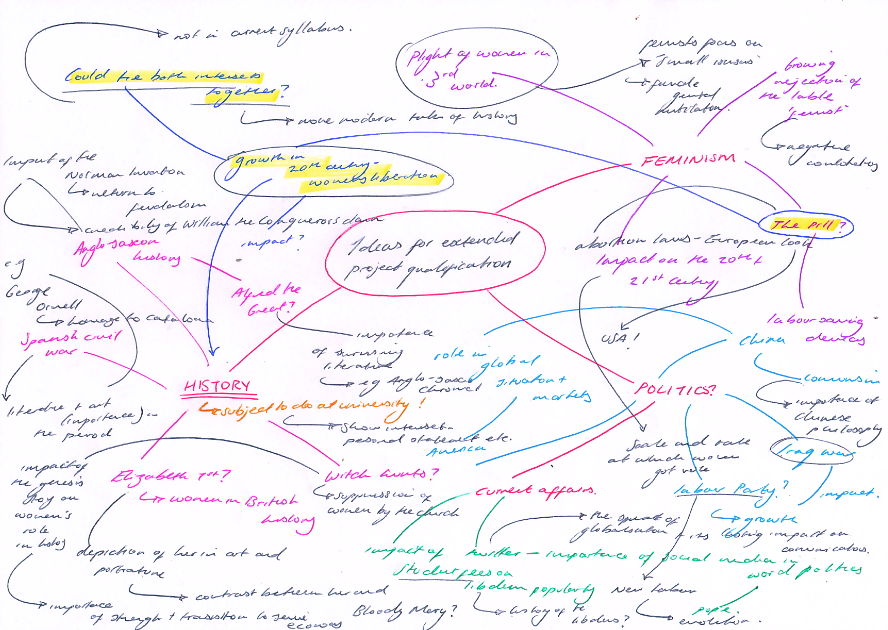 not in current syllabus.
Could the both interests
together?
more modern take of history
Plight of women in
3rd
world.
small issues
female
genital
mutilation
Growing
rejection of
the lable
negative
FEMINISM
Growth in
20th century -
womens liberation
impact?
The pill?
Impact of the
Norman Invasion
return to
feudalism
credibility of William the Conquerors claim
Anglo-saxon
history
Ideas for extended
project qualification
abortion laws - European
Impact on the 20th +
21st century
USA!
labour saving
devices
e.g
George
Orwell
homage to catalonia
Spanish civil
war
literature + art
(importance) in
the period
Alfred the
Great?
importance
of surviving
literature
e.g Anglo-Saxon
role in
global
situation +
markets
America
China
communism
importance of
chinese
philosophy
HISTORY
subject to do at university!
show interest in
personal statement etc.
POLITICS?
Scale and rate
at which women
got vote
Iraq war
impact.
impact of
the genesis
story on
women's
role
in history
Elizabeth 1st?
women in British
history
Witch hunts?
suppression of
women by the church
current affairs.
labour Party?
growth
the spread of
globalisation + its
impact on
impact of
student fees on
libdem popularity
twitter - importance of social media in
word politics
depiction of her in art and
portraiture
contrast between her and
Bloody Mary?
importance
of strength +
history of the
libdems?
New labour